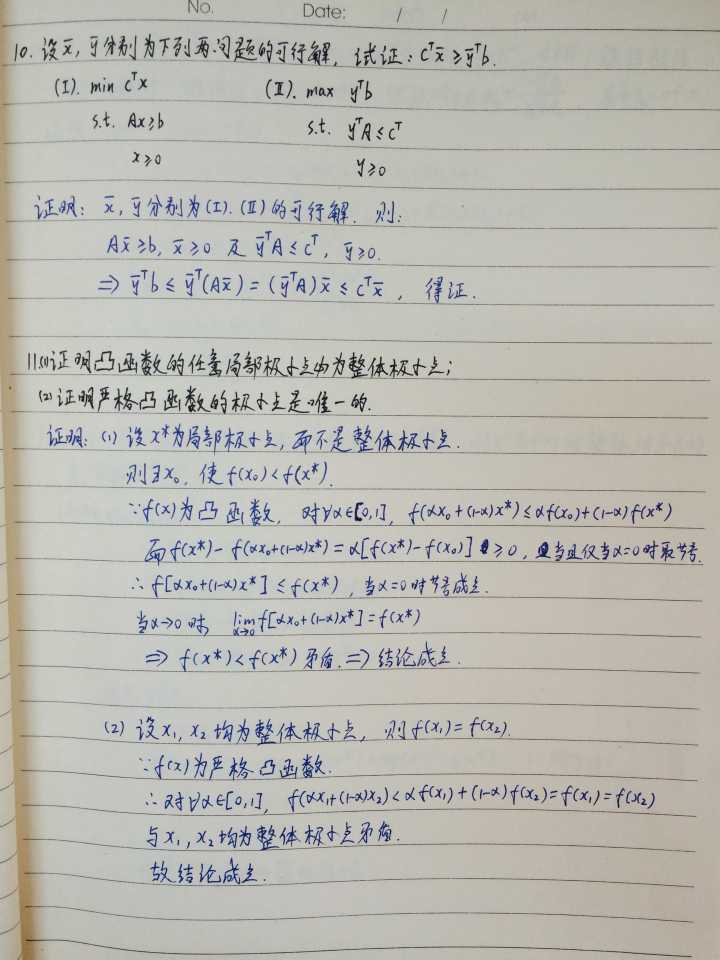 No. Date: / /
10. 设x̄, ȳ分别为下列两问题的可行解, 试证: cᵀx̄ ≥ ȳᵀb.
(Ⅰ). min cᵀx (Ⅱ). max yᵀb
s.t. Ax≥b s.t. yᵀA≤cᵀ
x≥0 y≥0
证明: x̄, ȳ分别为(Ⅰ). (Ⅱ)的可行解. 则:
Ax̄≥b, x̄≥0 及 ȳᵀA≤cᵀ, ȳ≥0.
⇒ ȳᵀb ≤ ȳᵀ(Ax̄) = (ȳᵀA)x̄ ≤ cᵀx̄ , 得证.
11.(1)证明凸函数的任意局部极小点均为整体极小点;
(2)证明严格凸函数的极小点是唯一的.
证明: (1) 设x*为局部极小点, 而不是整体极小点.
则∃x₀, 使f(x₀)<f(x*).
∵f(x)为凸函数, 对∀α∈[0,1], f(αx₀+(1-α)x*)≤αf(x₀)+(1-α)f(x*)
而f(x*)-f(αx₀+(1-α)x*)=α[f(x*)-f(x₀)] ≥0, 当且仅当α=0时取等号.
∴f[αx₀+(1-α)x*]≤f(x*), 当α=0时等号成立.
当α→0时, lim α→0 f[αx₀+(1-α)x*]=f(x*)
⇒ f(x*)<f(x*) 矛盾.⇒结论成立.
(2) 设x₁, x₂均为整体极小点, 则f(x₁)=f(x₂).
∵f(x)为严格凸函数.
∴对∀α∈[0,1], f(αx₁+(1-α)x₂)<αf(x₁)+(1-α)f(x₂)=f(x₁)=f(x₂)
与x₁, x₂均为整体极小点矛盾.
故结论成立.